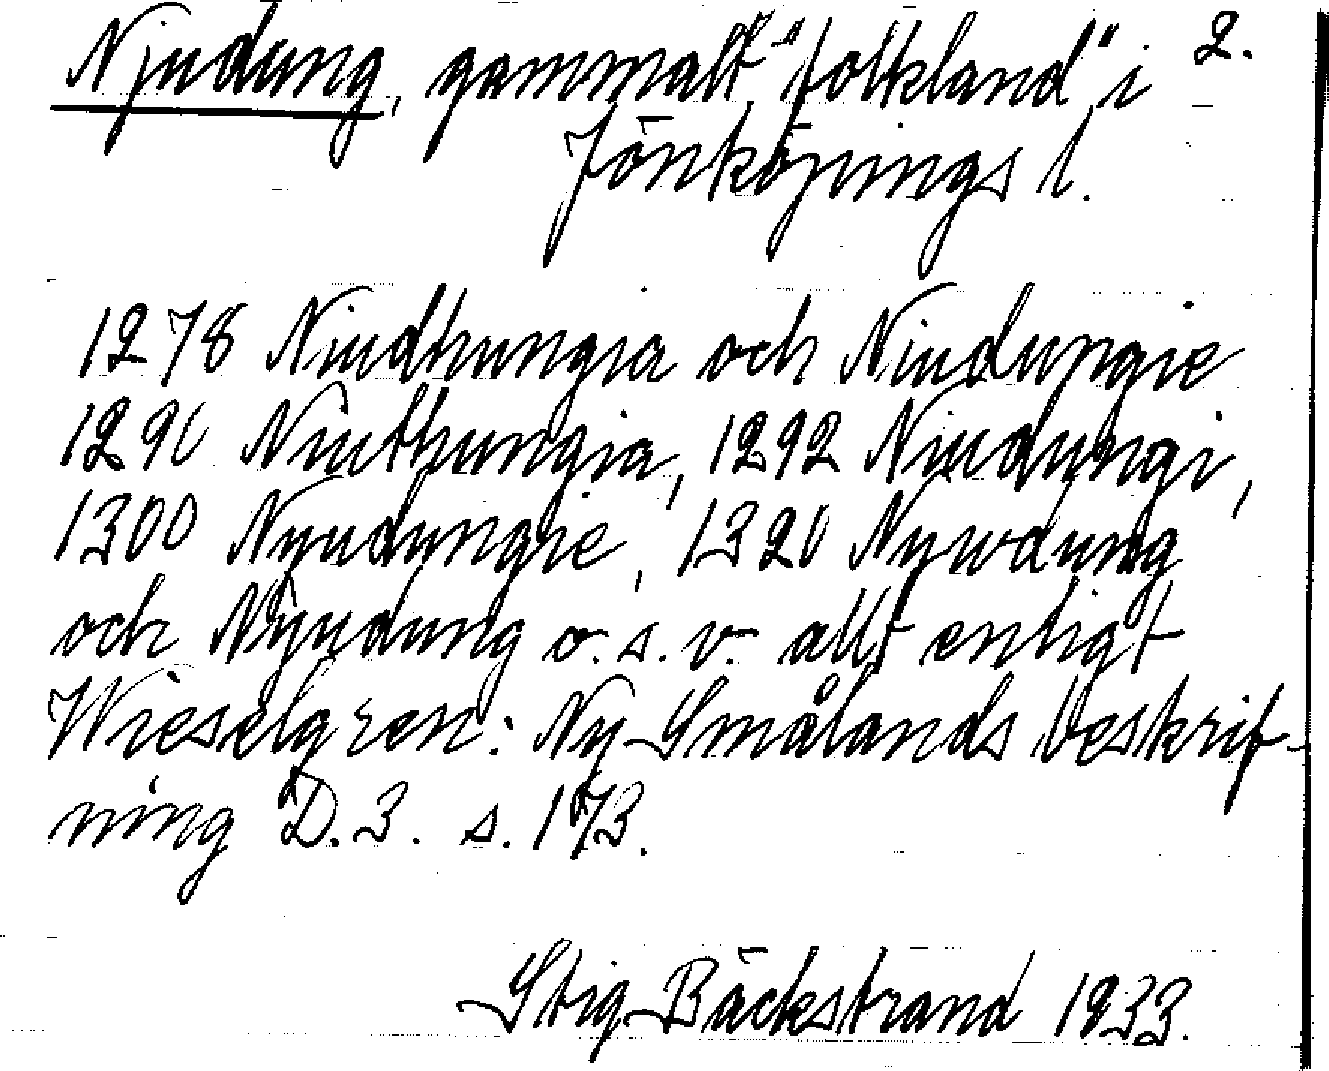 Njudung, gammalt "folkland" i 2.
Jönköpings l.
1278 Niudhungia och Niudungie
1290 Niuthungia, 1292 Niudungi,
1300 Nyudungie, 1320 Nywdung
och Nyudung o.s.v. allt enligt
Wieselgren: Ny Smålands beskrif-
ning D. 3. s. 173.
Stig Bäckstrand 1933.